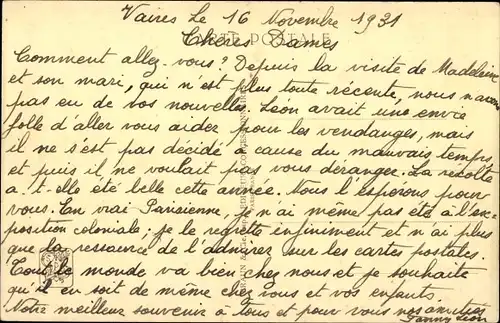 Vaires Le 16 Novembre 1931
CARTE POSTALE
Chères Dames
Comment allez-vous? Depuis la visite de Madeleine
et son mari, qui n'est plus toute récente, nous n'avons
pas eu de vos nouvelles. Léon avait une envie
folle d'aller vous aider pour les vendanges, mais
il ne s'est pas décidé a cause du mauvais temps
et puis il ne voulait pas vous déranger. La récolte
a-t-elle été belle cette année. Nous l'espérons pour
vous. En vrai Parisienne, je n'ai même pas été a l'ex
position coloniale; je le regrette infiniment et n'ai plus
que la ressource de l'admirer sur les cartes postales.
Tout le monde va bien chez nous et je souhaite
qu'il en soit de même chez vous et vos enfants
Notre meilleur souvenir a tous et pour vous nos amitiés
Fanny Léon